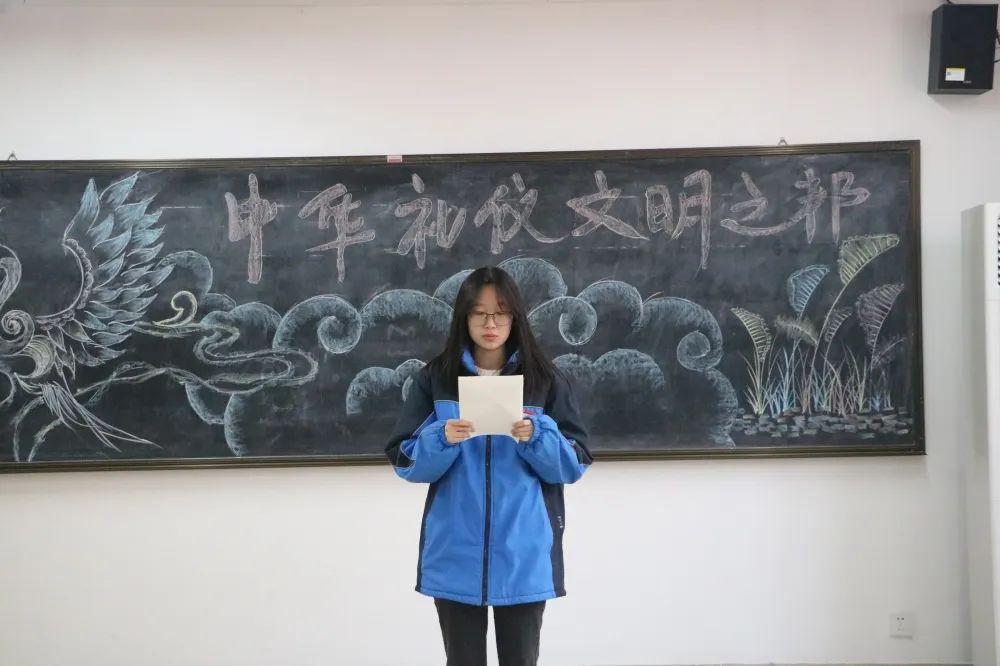 中华礼仪文明之邦